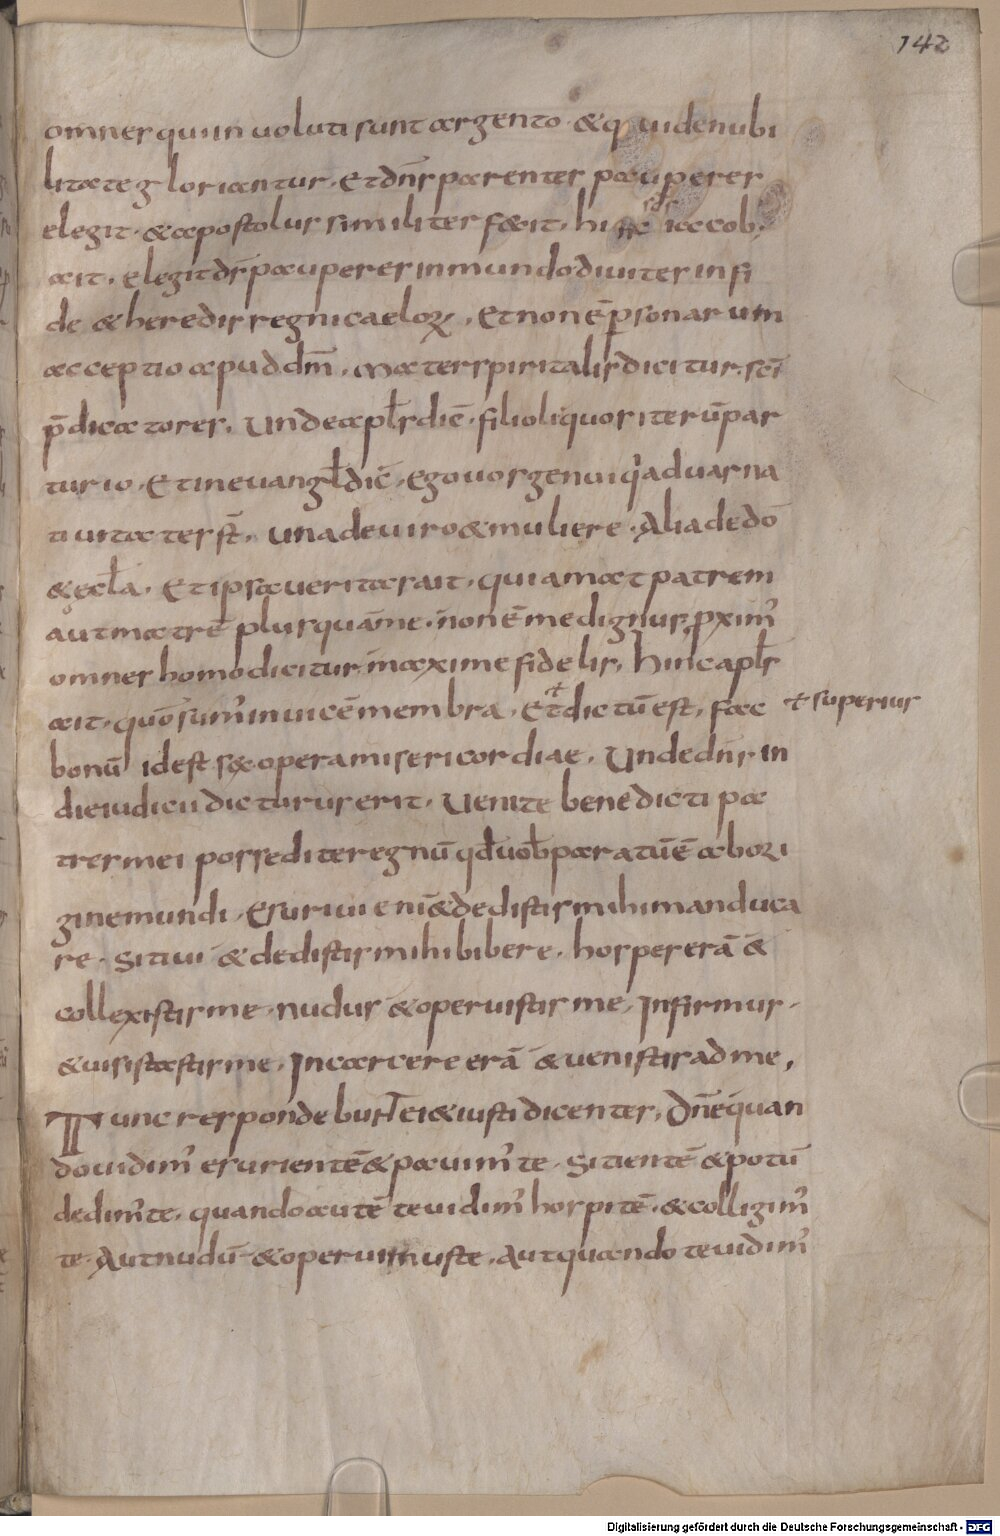 142
omnes qui inuoluti sunt argento · & q uide nubi
litate gloriantur · Et dn̄s parentes pauperes
elegit · & apostolus similiter fecit · hinc scs iacob
ait · elegit ds̄ pauperes in mundo diuites in fi
de & heredis regni caeloꝝ · Et non ē p̱sonarum
acceptio apud dm̄ · Mater spiritalis dicitur · scī
p̄dicatores · Unde apl̄s diē · filioli quos iterū par
turio · Et in euangl̄ dic̄ · ego uos genui q̓a duas na
tiuitates st̄ · una de uiro & muliere · Alia de dō
& ęcl̄a · Et ipsa ueritas ait · qui amat patrem
aut matrē plus quā me · non ē me dignus · p̱xim᾿
omnes homo dicitur maxime fidelis · hinc apl̄s
ait · quō sum᾿ inuicē membra · Et dictū est · fac
superius
bonū id est sęc opera misericordiae · Unde dn̄s in
die iudicii dicturus erit · Uenite benedicti pa
tres mei possedite regnū qd̄ uob̄ paratū ē ab ori
gine mundi · Esuriui enī & dedistis mihi manduca
re · Sitiui & dedistis mihi bibere · hospes erā &
collexistis me · nudus & operuistis me · Infirmus ·
& uisistastis me · In carcere erā & uenistis ad me ·
Tunc respondebunt ei & iusti dicentes · Dn̄e quan
do uidim᾿ esurientē & pauim᾿ te · Sitientē & potū
dedim᾿ te · quando autē te uidim᾿ hospitē · & colligim᾿
te · Aut nudū & operuimus te · Aut quando te uidim᾿
Digitalisierung gefördert durch die Deutsche Forschungsgemeinschaft - DFG